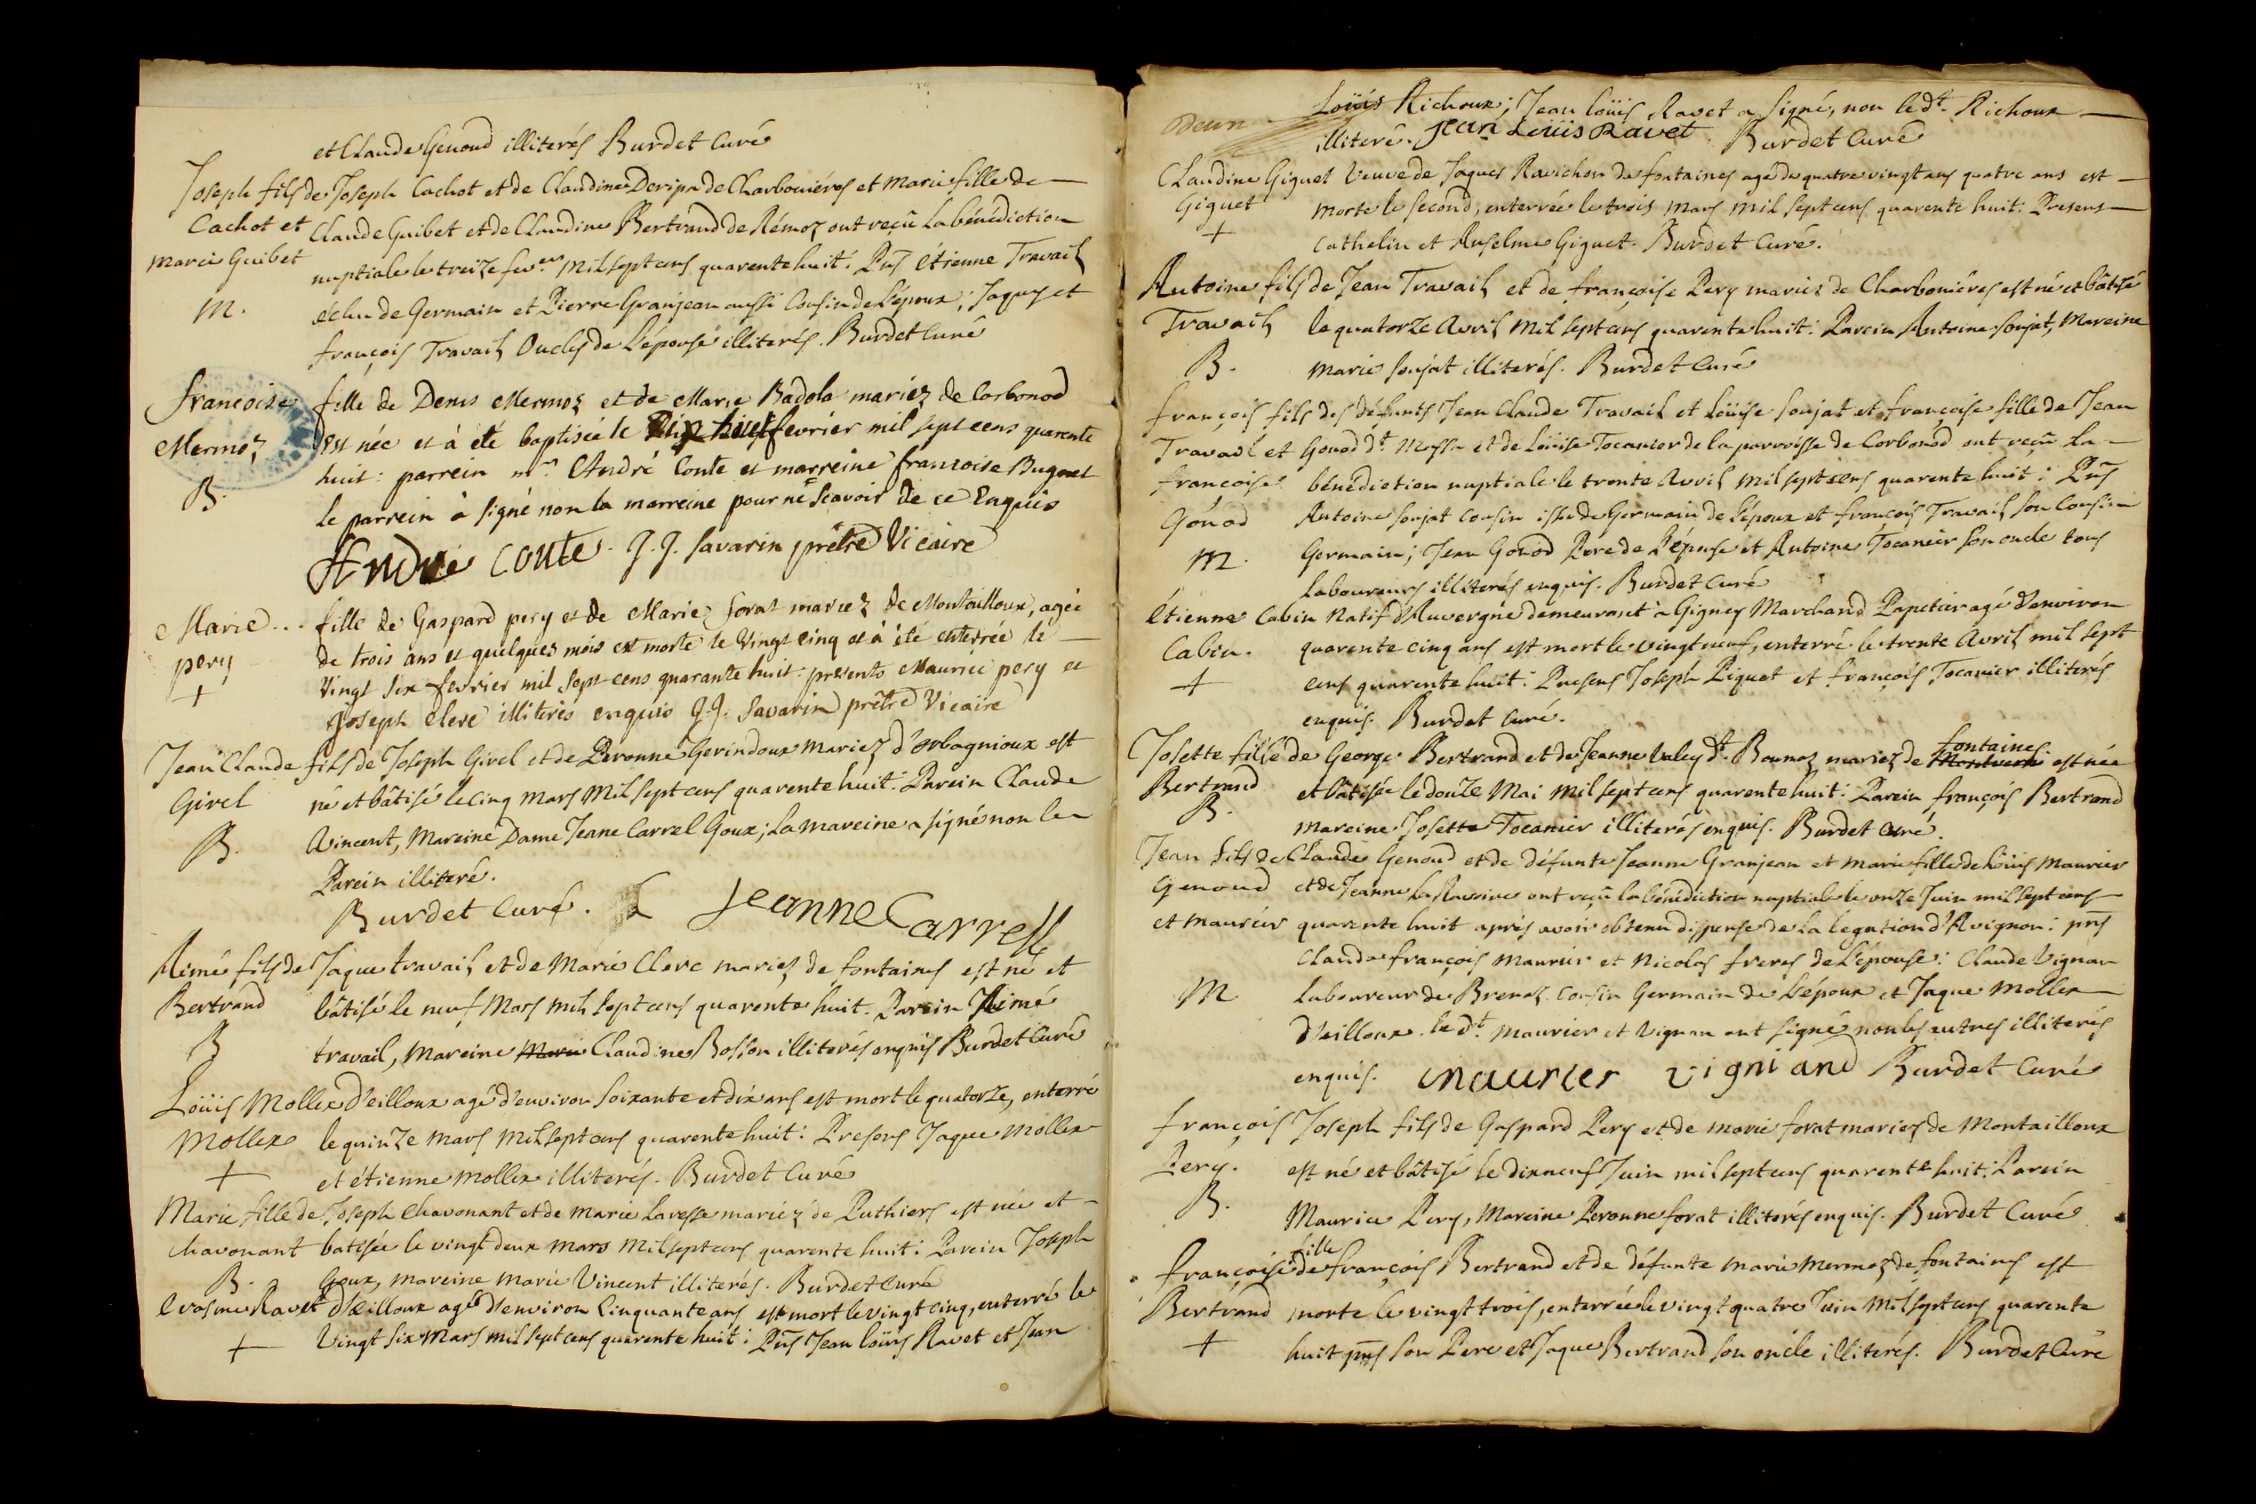 et Claude Genoud illiterés Burdet Curé
Joseph fils de Joseph Cachot et de Claudine Deripa de Charbonières et Marie fille de
Cachot et Claude Guibet et de Claudine Bertrand de Rémoz ont reçû la bénédiction
Marie Guibet nuptiale le treize fev.er mil sept cens quarente huit. Pns étienne Travail
M. éclu de Germain et Pierre Granjean aussi Cousin de L'époux; Jaques et
françois Travail Oncles de L'épouse illiterés. Burdet Curé
francoise fille de Denis Mermoz et de Marie Badola mariez de Corbonod
Mermoz est née et à été baptisée le Dix huit fevrier mil sept cens quarente
B. huit: parrein mr. André Conte et marreine francoise Bugnet
le parrein à signé non la marreine pour ne scavoir de ce Enquis
André Conte. J.J. Savarin prêtre Vicaire
Marie... fille de Gaspard pery et de Marie forat mariez de Montailloux, agée
pery de trois ans et quelques mois est morte le Vingt cinq et à été enterrée le
+ Vingt six fevrier mil sept cens quarante huit: presents Maurice pery et
joseph Clerc illiterés enquis J.J. Savarin prêtre Vicaire
Jean Claude fils de Joseph Givel et de Peronne Gerindoux mariez d'orbagnioux est
Givel né et bâtisé le Cinq Mars Mil sept cens quarente huit. Parein Claude
B. Vincent, Mareine Dame Jeane Carrel Goux; La mareine a signé non le
Parein illiteré.
Burdet Curé. Jeanne Carrell
Aimé fils de Jaque travail et de Marie Clerc mariez de fontaines est né et
Bertrand bâtisé le neuf Mars mil sept cens quarente huit. Parein Aimé
B travail, mareine Marie Claudine Bosson illiterés enquis Burdet Curé
Loüis Mollex d'eilloux agé d'environ soixante et dix ans est mort le quatorze, enterré
Mollex le quinze mars mil sept cens quarente huit: Presens Jaque Mollex
+ et étienne mollex illiterés. Burdet Curé
Marie fille de Joseph Chavonant et de marie Lavesse mariez de Puthiers est née et
Chavonant batisée le vingt deux mars mil sept cens quarente huit: Parein Joseph
B. Goux, mareine marie Vincent illiterés. Burdet Curé
Erasme Ravet d'eilloux agé d'environ Cinquante ans est mort le vingt cinq, enterré le
+ Vingt six mars mil sept cens quarente huit: Pns Jean loüis Ravet et Jean
Loüis Richoux; Jean loüis Ravet a signé, non le dt. Richoux
illiteré. Jean Loüis Ravet Burdet Curé
Claudine Giguet Veuve de Jaques Ravichon de fontaines agé de quatre vingt ans quatre ans est
Giguet morte le second, enterrée le trois mars mil sept cens quarente huit: Presens
+ Cathelin et Anselme Giguet. Burdet Curé.
Antoine fils de Jean Travail et de françoise Pery mariez de Charbonières est né et bâtisé
Travail le quatorze Avril mil sept cens quarente huit: Parein Antoine Soujat, Mareine
B. Marie Soujat illiterés. Burdet Curé
françois fils des défunts Jean Claude Travail et Loüise Soujat et françoise fille de Jean
Travail et Gonod dt. Mossu et de Loüise Tocanier de la parroisse de Corbonod ont reçû la
francoise bénédiction nuptiale le trente Avril mil sept cens quarente huit: Pns
Gonod Antoine Soujat Cousin issu de Germain de l'époux et françois Travail son Cousin
M. Germain; Jean Gonod Pere de L'épouse et Antoine Tocanier son oncle tous
Laboureurs illiterés enquis. Burdet Curé
étienne Cabin Natif d'Auvergne demeurant à Gignez Marchand Papetier agé d'environ
Cabin. quarente cinq ans est mort le vingt neuf, enterré le trente Avril mil sept
+ cens quarente huit: Presens Joseph Piquet et françois Tocanier illiterés
enquis. Burdet Curé.
fontaines
Josette fille de George Bertrand et de Jeanne Valey dt. Bounoz mariez de est née
Bertrand et bâtisée le douze Mai mil sept cens quarente huit: Parein françois Bertrand
B. mareine Josette Tocanier illiterés enquis. Burdet Curé.
Jean fils de Claude Genoud et de défunte Jeanne Granjean et marie fille de loüis Maurier
Genoud et de Jeanne la Ravoire ont reçû la bénédiction nuptiale le onze Juin mil sept cens
et Maurier quarente huit après avoir obtenu dispense de la legation d'Avignon: pns
Claude françois Maurier et Nicolas freres de L'épouse: Claude Vignan
M Laboureur de Brenoz Cousin Germain de L'époux et Jaque Mollex
d'eilloux. le dt. Maurier et Vignan ont signé non les autres illiterés
enquis. Maurier vigniand Burdet Curé
françois Joseph fils de Gaspard Pery et de marie forat mariez de Montailloux
Pery. est né et bâtisé le dixneuf Juin mil sept cens quarente huit: Parein
B. Maurice Pery, Mareine Peronne forat illiterés enquis. Burdet Curé
fille
françoise de françois Bertrand et de défunte Marie Mermoz de fontaines est
Bertrand morte le vingt trois, enterrée le vingt quatre Juin mil sept cens quarente
+ huit pns son Pere et Jaque Bertrand son oncle illiterés. Burdet Curé